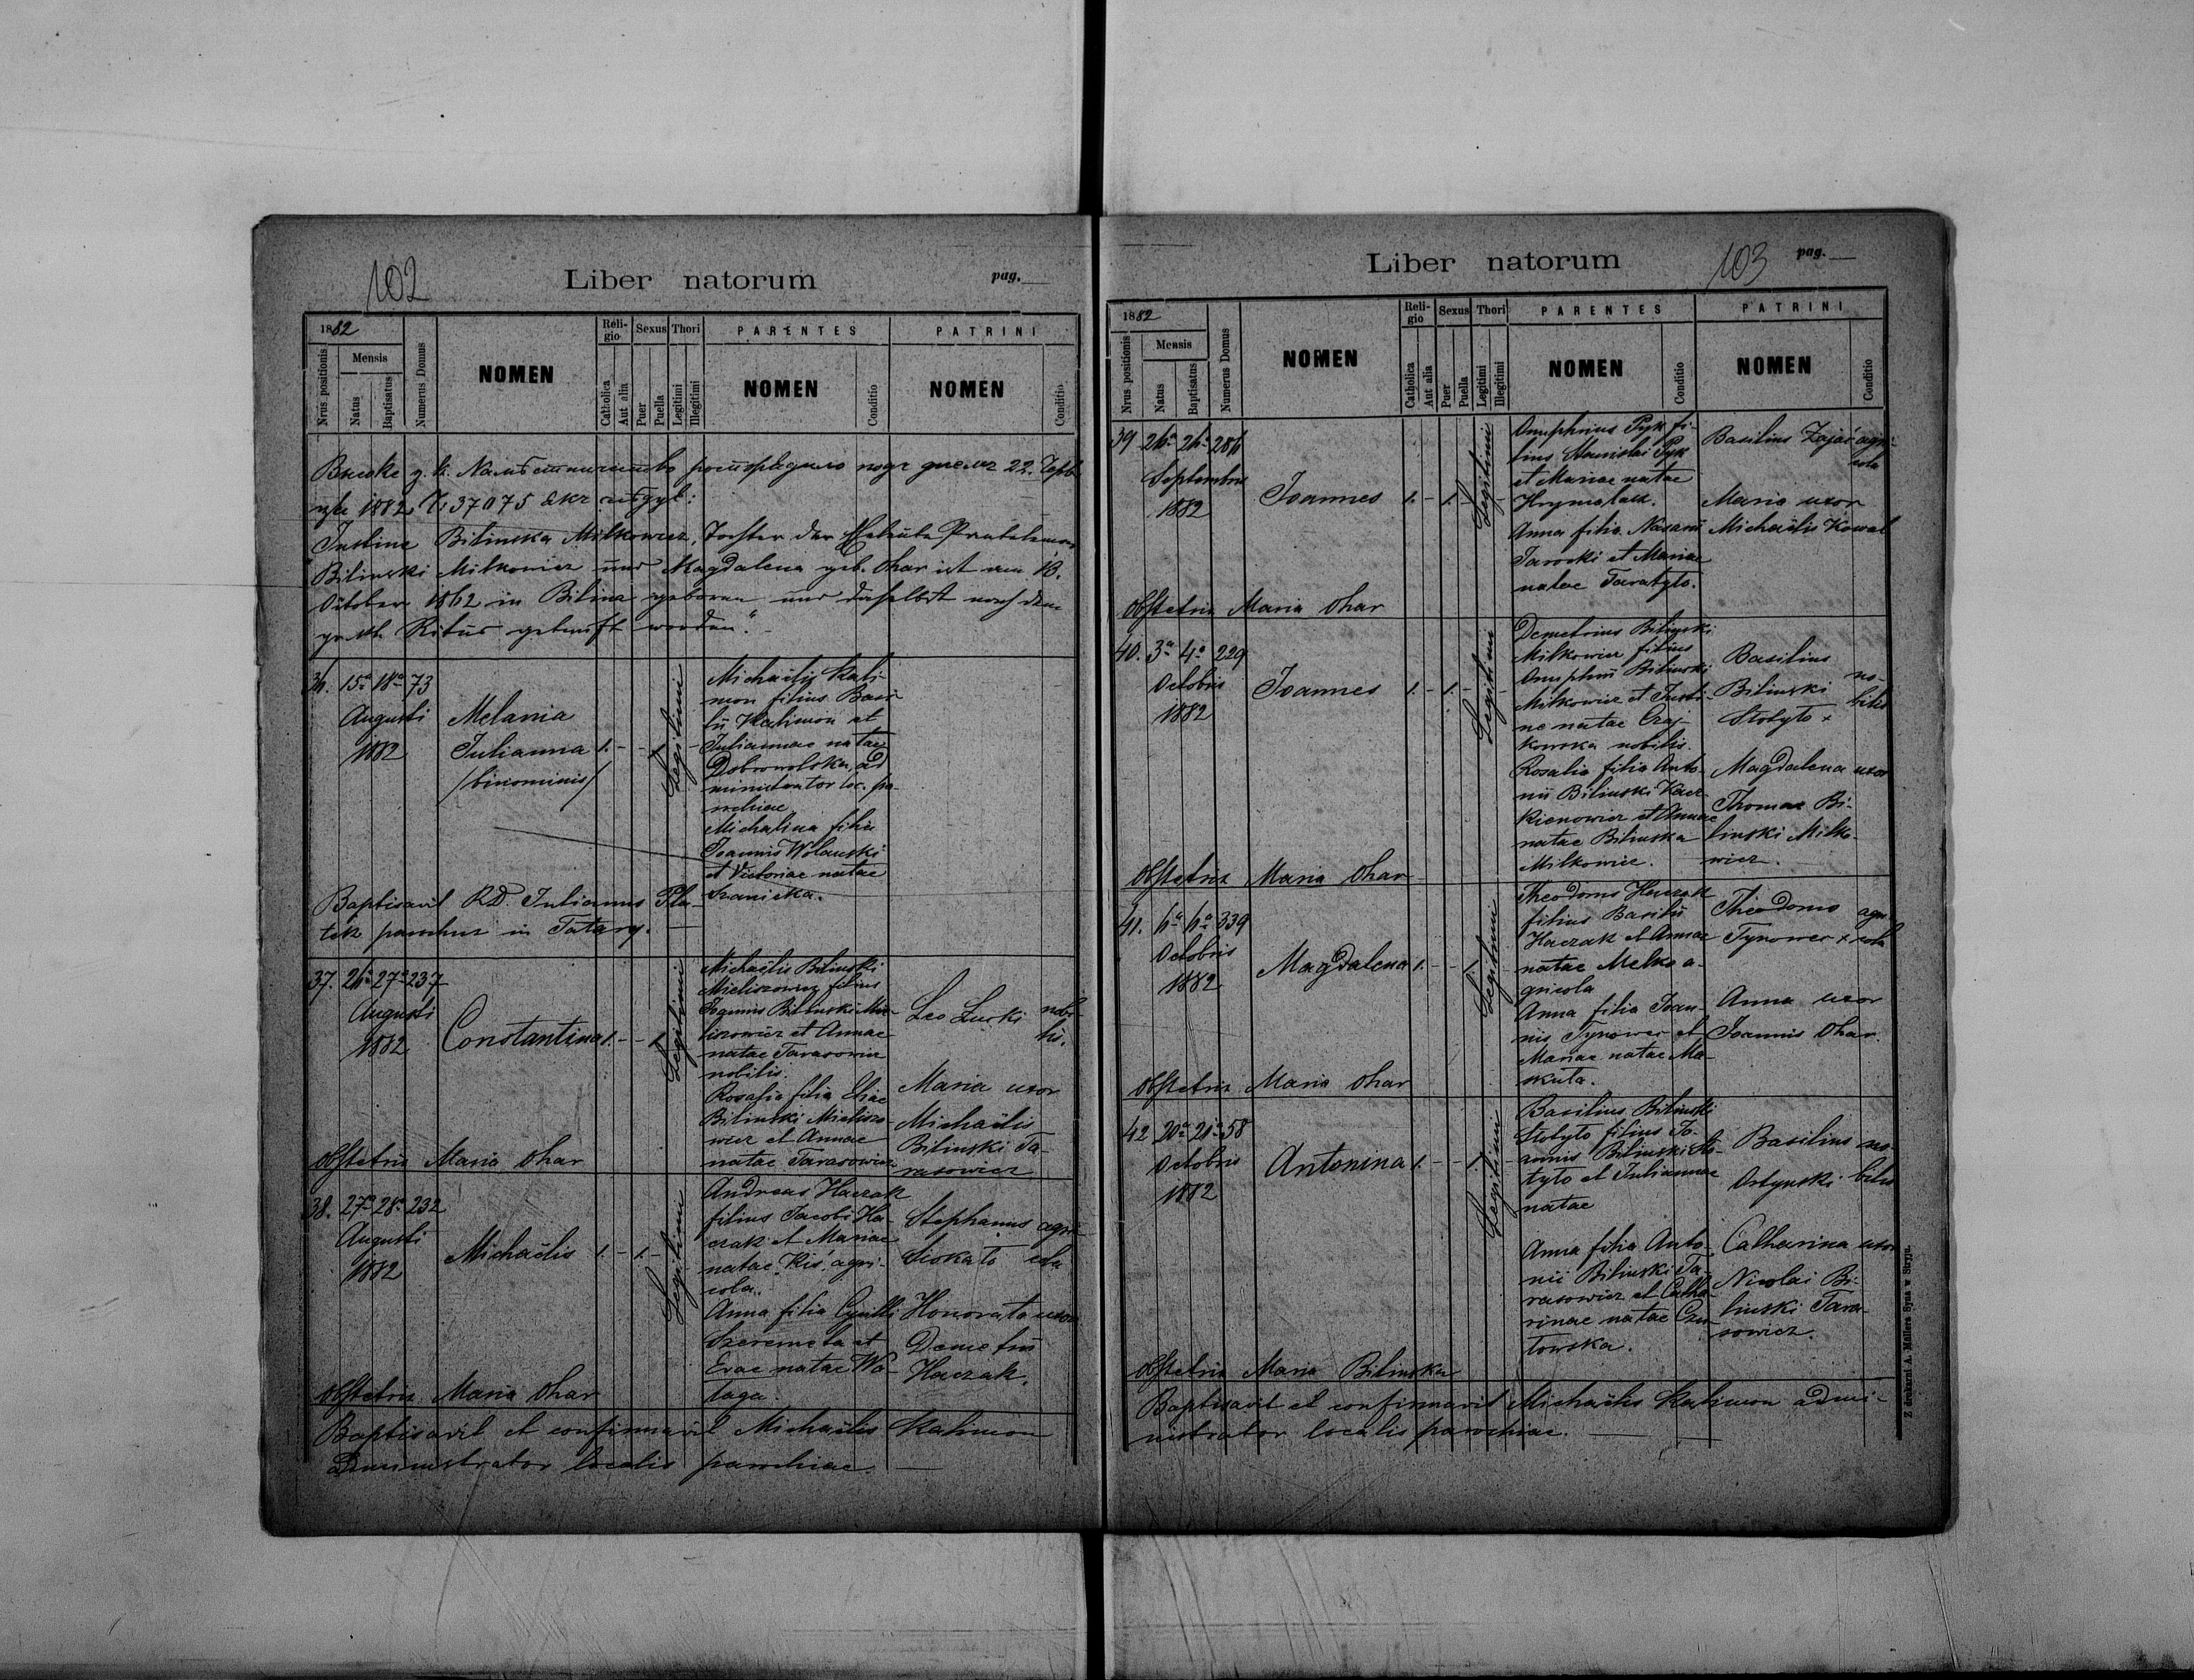 102
Liber natorum
pag.
1882
Nrus positionis
Mensis
Natus
Baptisatus
Numerus Domus
NOMEN
Religio
Catholica
Aut alia
Sexus
Puer
Puella
Thori
Legitimi
Illegitimi
PARENTES
NOMEN
Conditio
PATRINI
NOMEN
Conditio
1882 37075
Justine Bilinska Milkowicz, Tochter der Eheleute
Bilinski Milkowicz und Magdalena geb. Ohar ist am 13.
October 1862 in Bilina geboren und daselbst nach dem
Ritus getauft worden."
36. 15a 18a 73
Augusti
1882
Melania
Julianna
/binominis/
1. - - 1. -
Legitimi
Michaëlis Kali-
mon filius Basi-
lii Kalimon et
Juliannae natae
Dobrowolska, ad
ministrator loc. pa-
rochiae
Michalina filia
Joannis Wolanski
et Victoriae natae
Baptisavit RD. Julianus Pla-
tek parochus in Tatary.
37. 26a 27a 237
Augusti
1882
Constantina
1. - - 1.
Legitimi
Michaëlis Bilinski
Mieliszowicz filius
Joannis Bilinski Mie-
liszowicz et Annae
natae Tarasowicz
nobilis.
Rosalia filia Eliae
Bilinski Mieliszo-
wicz et Annae
natae Tarasowicz
Leo Lurski nobi-
lis.
Maria uxor
Michaëlis
Bilinski Ta-
rasowicz
Obstetrix Maria Ohar
38. 27a 28a 232
Augusti
1882
Michaëlis
1. - 1. -
Legitimi
Andreas Haczak
filius Jacobi Ha-
czak et Mariae
natae Kis, agri-
cola.
Anna filia Cyrilli
Szeremeta et
Evae natae Wo-
taga.
Stephanus agri-
Siokato cola
Honorata uxor
Demetrii
Haczak.
Obstetrix Maria Ohar
Baptisavit et confirmavit Michaëlis Kalimon
Administrator localis parochiae.
Liber natorum
103
pag.
1882
Nrus positionis
Mensis
Natus
Baptisatus
Numerus Domus
NOMEN
Religio
Catholica
Aut alia
Sexus
Puer
Puella
Thori
Legitimi
Illegitimi
PARENTES
NOMEN
Conditio
PATRINI
NOMEN
Conditio
39 26a 26a 286
Septembris
1882
Joannes
1. - 1. -
Legitimi
Onuphrius Pyk fi-
lius Stanislai Pyk
et Mariae natae
Anna filia Nazarii
Jaroski et Mariae
natae Taratyto.
Basilius Zając agri-
cola
Maria uxor
Michaëlis Kowal
Obstetrix Maria Ohar
40. 3a 4a 229
Octobris
1882
Joannes
1. - 1. -
Legitimi
Demetrius Bilinski
Milkowicz filius
Onuphrii Bilinski
Milkowicz et Justi-
ne natae Czaj-
kowska nobilis.
Rosalia filia Anto-
nii Bilinski Kacz-
kienowicz et Annae
natae Bilinska
Milkowicz.
Basilius
Bilinski no-
bilis
Stotyto +
Magdalena uxor
Thomae Bi-
linski Milko-
wicz.
Obstetrix Maria Ohar
41. 6a 6a 339
Octobris
1882
Magdalena
1. - - 1. -
Legitimi
Theodorus Haczak
filius Basilii
Haczak et Annae
natae Melko a-
gricola
Anna filia Joan-
nis Tynower et
Mariae natae Ma-
skuta.
Theodorus agri-
Tynower + cola
Anna uxor
Joannis Ohar.
Obstetrix Maria Ohar
42 20a 21a 58
Octobris
1882
Antonina
1. - - 1. -
Legitimi
Basilius Bilinski
Stotyto filius Jo-
annis Bilinski Sto-
tyto et Juliannae
natae
Anna filia Anto-
nii Bilinski Ta-
rasowicz et Catha-
rinae natae Czu-
towska.
Basilius no-
bilis
Catharina uxor
Nicolai Bi-
linski Tara-
sowicz.
Obstetrix Maria Bilinska
Baptisavit et confirmavit Michaëlis Kalimon admi-
nistrator localis parochiae.
Z drukarni A. Müllera Syna w Stryju.